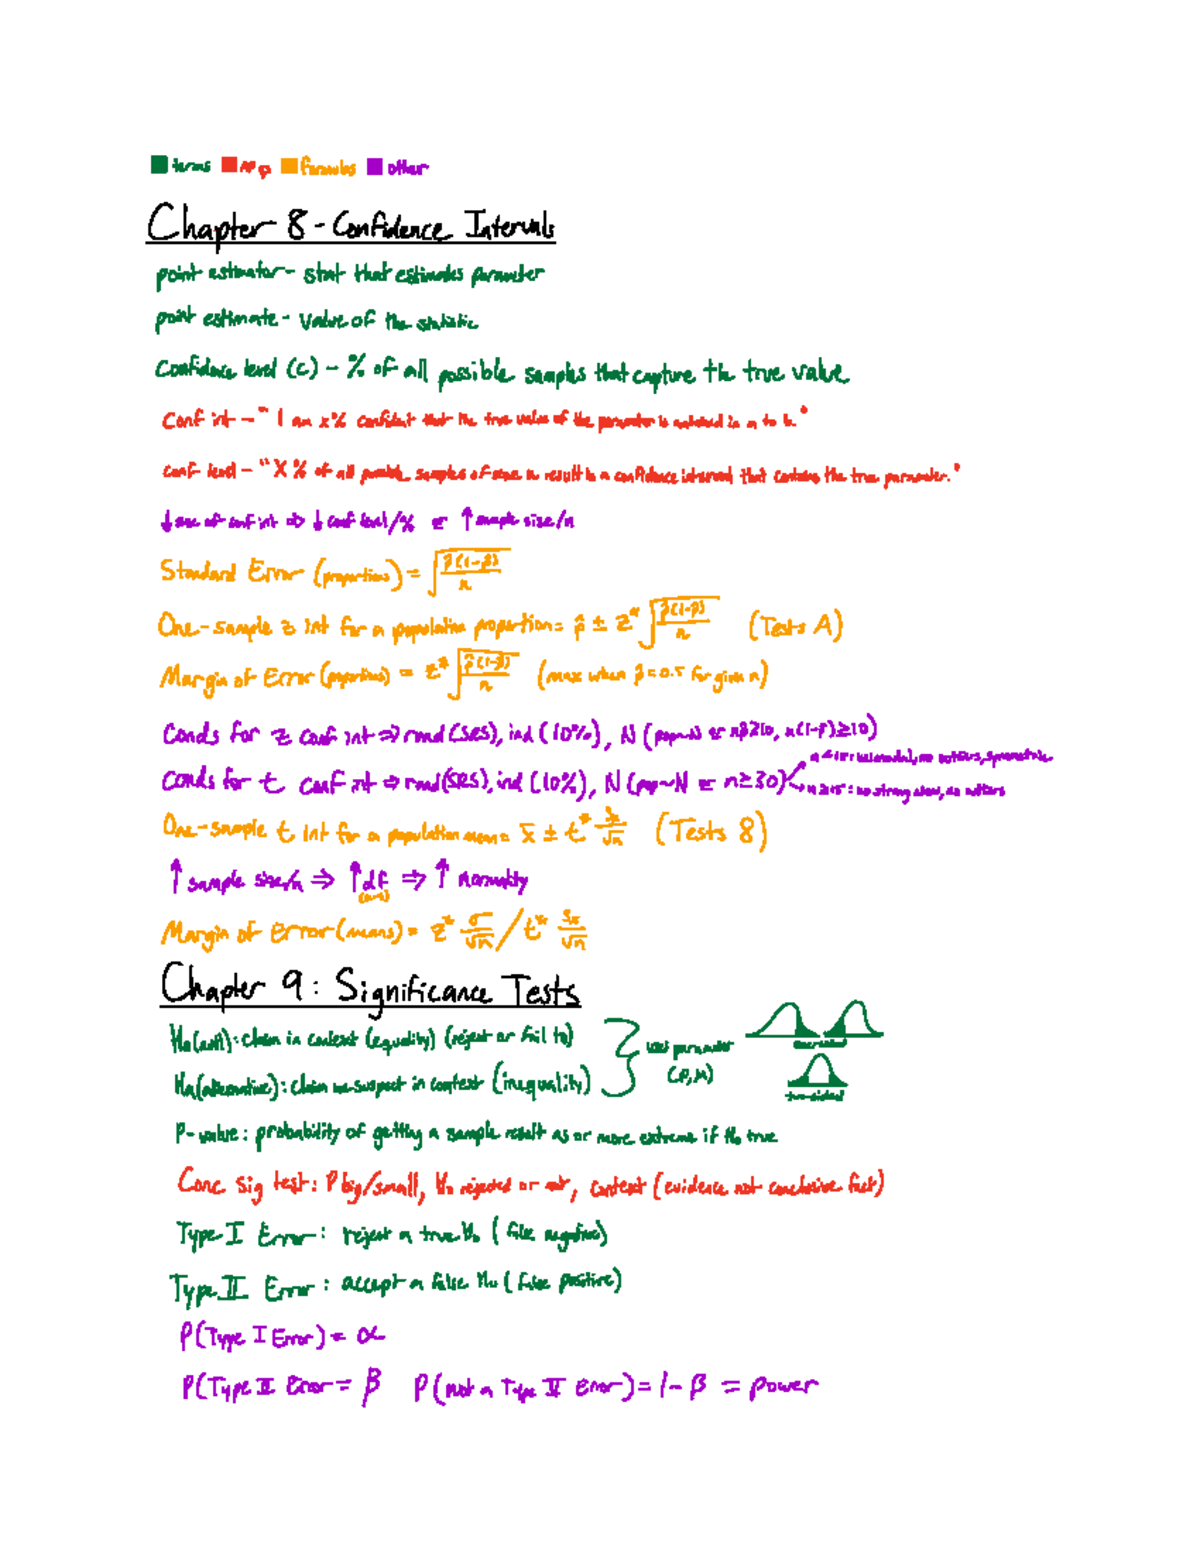 terms formulas other
Chapter 8 - Confidence Intervals
point estimator - stat that estimates parameter
point estimate - value of the statistic
Confidence level (C) - % of all possible samples that capture the true value
Conf int - " I am x% confident that the true value of the parameter is in a to b."
conf level - "X% of all possible samples of size n result in a confidence interval that contains the true parameter."
↓ size of conf int ⇒ ↓ conf level/% or ↑ sample size/n
Standard Error (proportions) = √(p̂(1-p̂)/n)
One-sample z int for a population proportion = p̂ ± z* √(p̂(1-p̂)/n) (Tests A)
Margin of Error (proportions) = z* √(p̂(1-p̂)/n) (max when p̂=0.5 for given n)
Conds for z conf int ⇒ rand (SRS), ind (10%), N (pop~N or np̂≥10, n(1-p̂)≥10)
n<15: unimodal, no outliers, symmetric
Conds for t conf int ⇒ rand (SRS), ind (10%), N (pop~N or n≥30)
n≥15: no strong skew, no outliers
One-sample t int for a population mean = x̄ ± t* Sx/√n (Tests 8)
↑ sample size/n ⇒ ↑ df ⇒ ↑ normality
(n-1)
Margin of Error (means) = z* σ/√n / t* Sx/√n
Chapter 9: Significance Tests
H₀ (null): claim in context (equality) (reject or fail to)
use parameter
(p, μ)
one-sided
Ha (alternative): claim we suspect in context (inequality)
two-sided
P-value: probability of getting a sample result as or more extreme if H₀ true
Conc sig test: P big/small, H₀ rejected or not, context (evidence not conclusive fact)
Type I Error: reject a true H₀ (false negative)
Type II Error: accept a false H₀ (false positive)
P(Type I Error) = α
P(Type II Error = β P(not a Type II Error) = 1-β = power